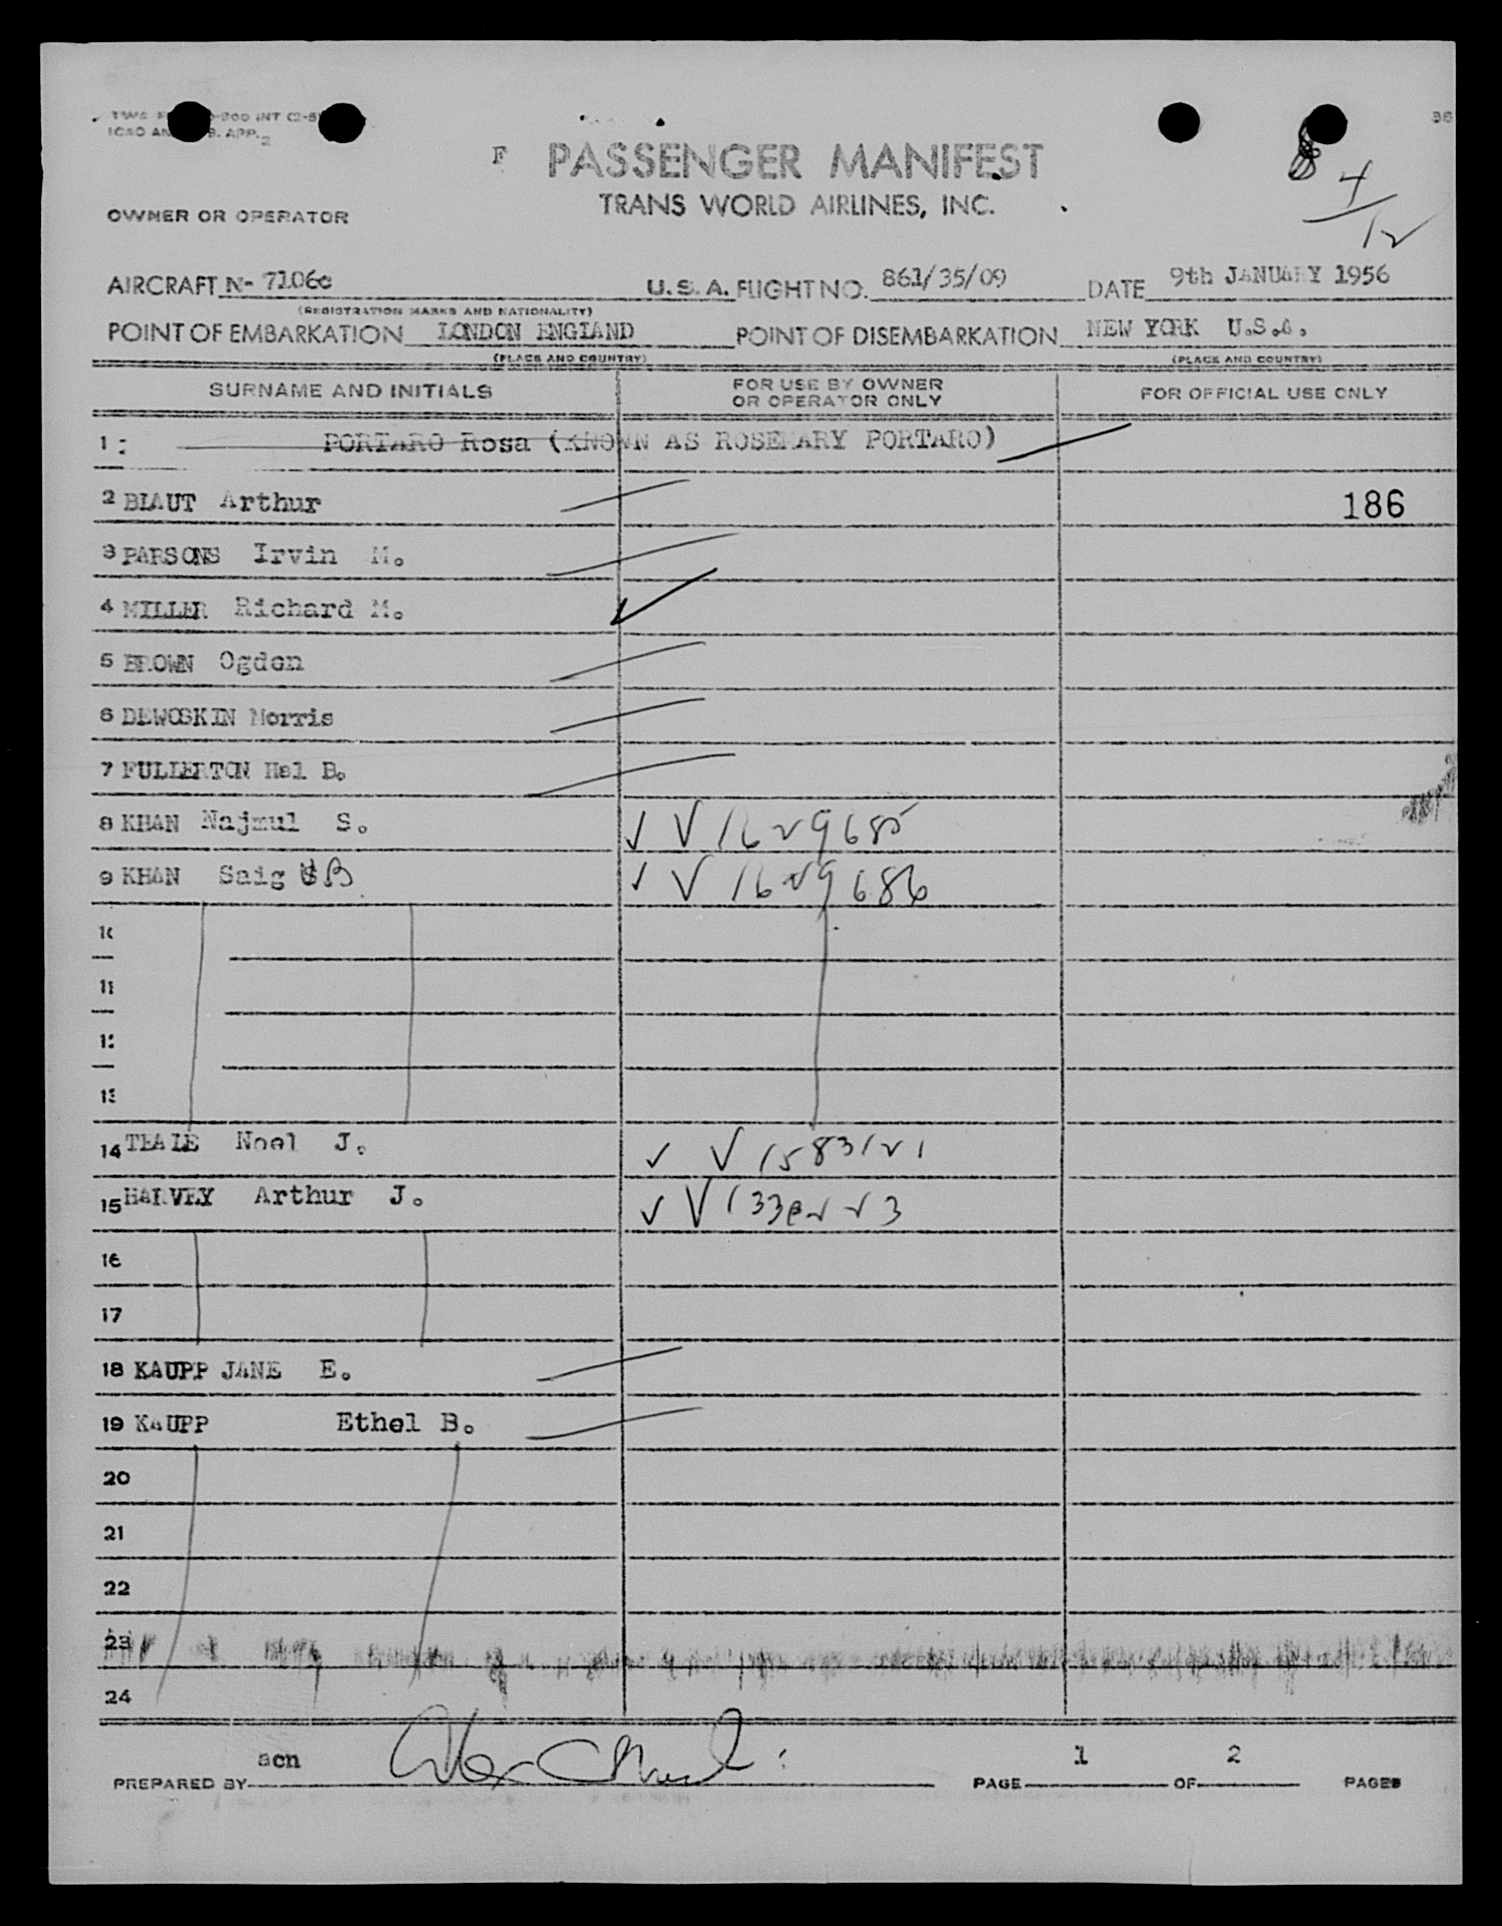 ICAO AN B. APP. 2
F PASSENGER MANIFEST
TRANS WORLD AIRLINES, INC.
4/12
OWNER OR OPERATOR
AIRCRAFT N- 7106c U.S.A. FLIGHT NO. 861/35/09 DATE 9th JANUARY 1956
(REGISTRATION MARKS AND NATIONALITY)
POINT OF EMBARKATION LONDON ENGLAND POINT OF DISEMBARKATION NEW YORK U.S.A.
(PLACE AND COUNTRY) (PLACE AND COUNTRY)
SURNAME AND INITIALS FOR USE BY OWNER OR OPERATOR ONLY FOR OFFICIAL USE ONLY
1 PORTARO Rosa (KNOWN AS ROSEMARY PORTARO)
2 BLAUT Arthur 186
3 PARSONS Irvin M.
4 MILLER Richard M.
5 BROWN Ogden
6 DEWOSKIN Morris
7 FULLERTON Hal B.
8 KHAN Najmul S. ✓ ✓ 1629685
9 KHAN Saig B ✓ ✓ 1629686
10
11
12
13
14 TEALE Noel J. ✓ ✓ 1583121
15 HARVEY Arthur J. ✓ ✓
16
17
18 KAUPP JANE E.
19 KAUPP Ethel B.
20
21
22
23
24
acn
PREPARED BY PAGE 1 OF 2 PAGES